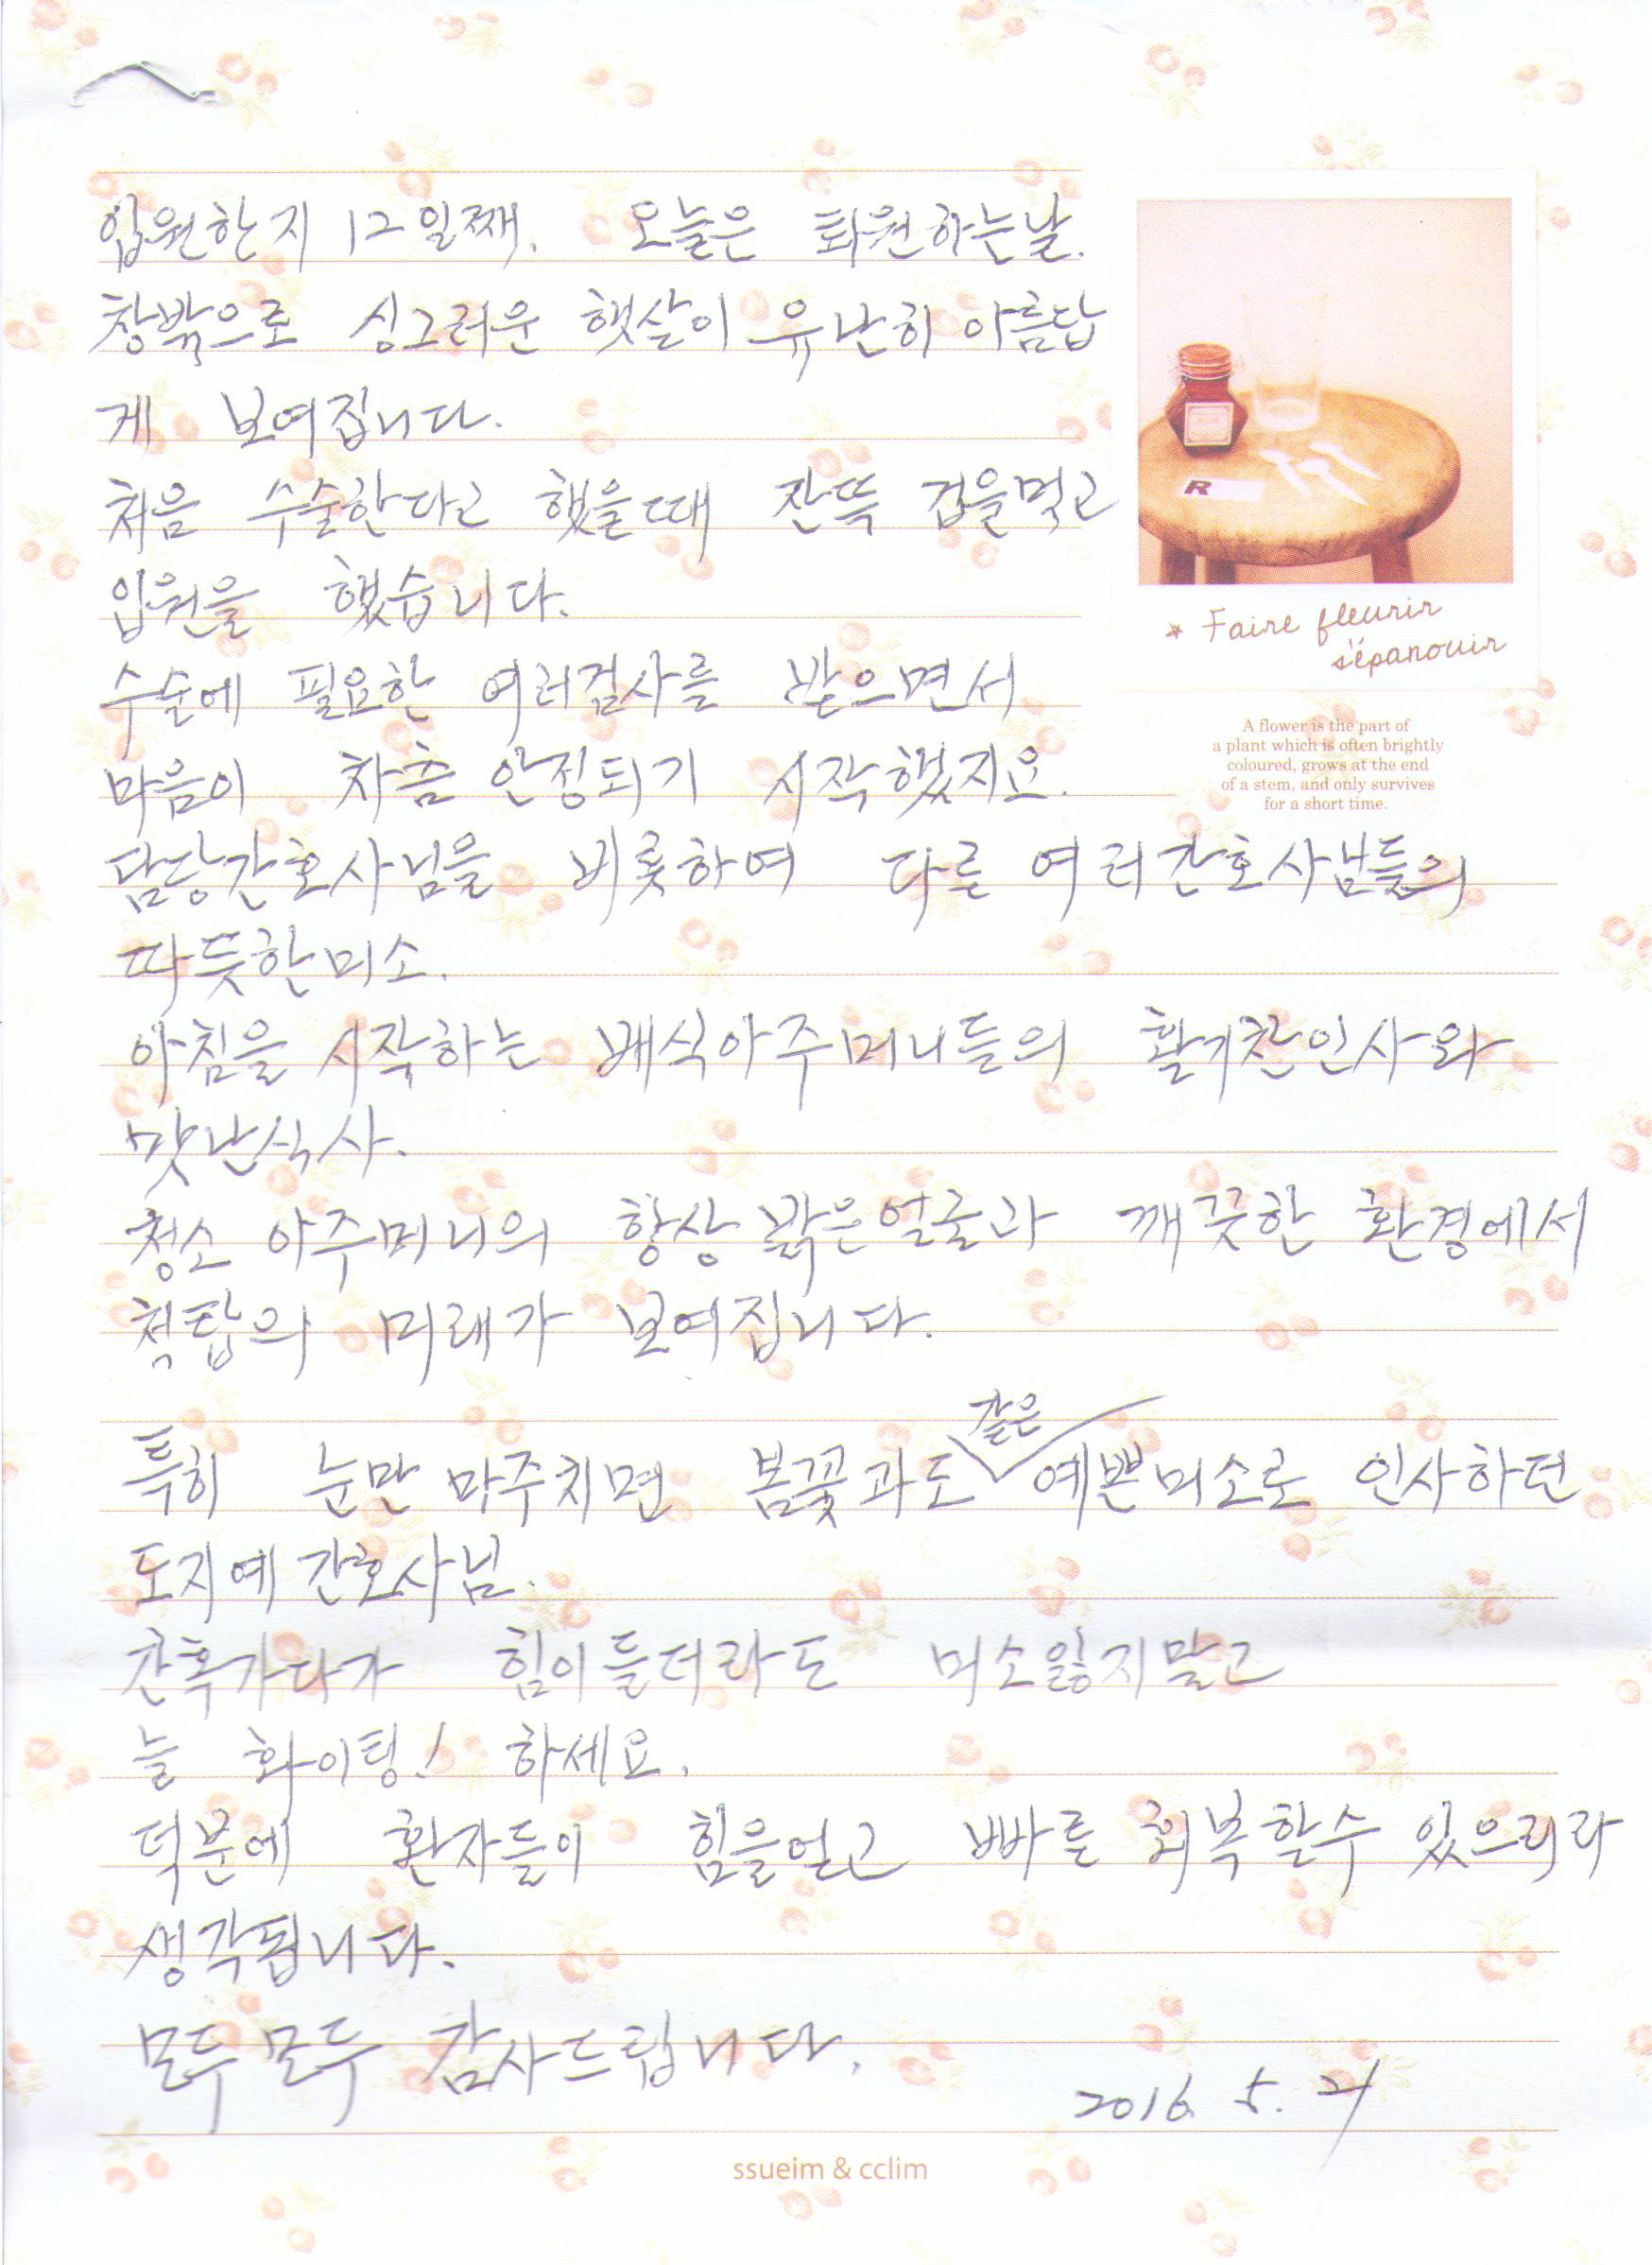 입원한지 12일째. 오늘은 퇴원하는날.
창밖으로 싱그러운 햇살이 유난히 아름답
게 보여집니다.
처음 수술한다고 했을때 잔뜩 겁을먹고
입원을 했습니다.
수술에 필요한 여러검사를 받으면서
마음이 차츰 안정되기 시작했지요.
담당간호사님을 비롯하여 다른 여러간호사님들의
따듯한미소.
아침을 시작하는 배식아주머니들의 활기찬인사와
맛난식사.
청소 아주머니의 항상 밝은얼굴과 깨끗한 환경에서
척탑의 미래가 보여집니다.
특히 눈만 마주치면 봄꽃과도 같은 예쁜미소로 인사하던
도지예 간호사님.
간혹가다가 힘이들더라도 미소잃지말고
늘 화이팅! 하세요.
덕분에 환자들이 힘을얻고 빠른 회복할수 있으리라
생각됩니다.
모두 모두 감사드립니다.
2016. 5.
R
* Faire fleurir
s'épanouir
A flower is the part of
a plant which is often brightly
coloured, grows at the end
of a stem, and only survives
for a short time.
ssueim & cclim